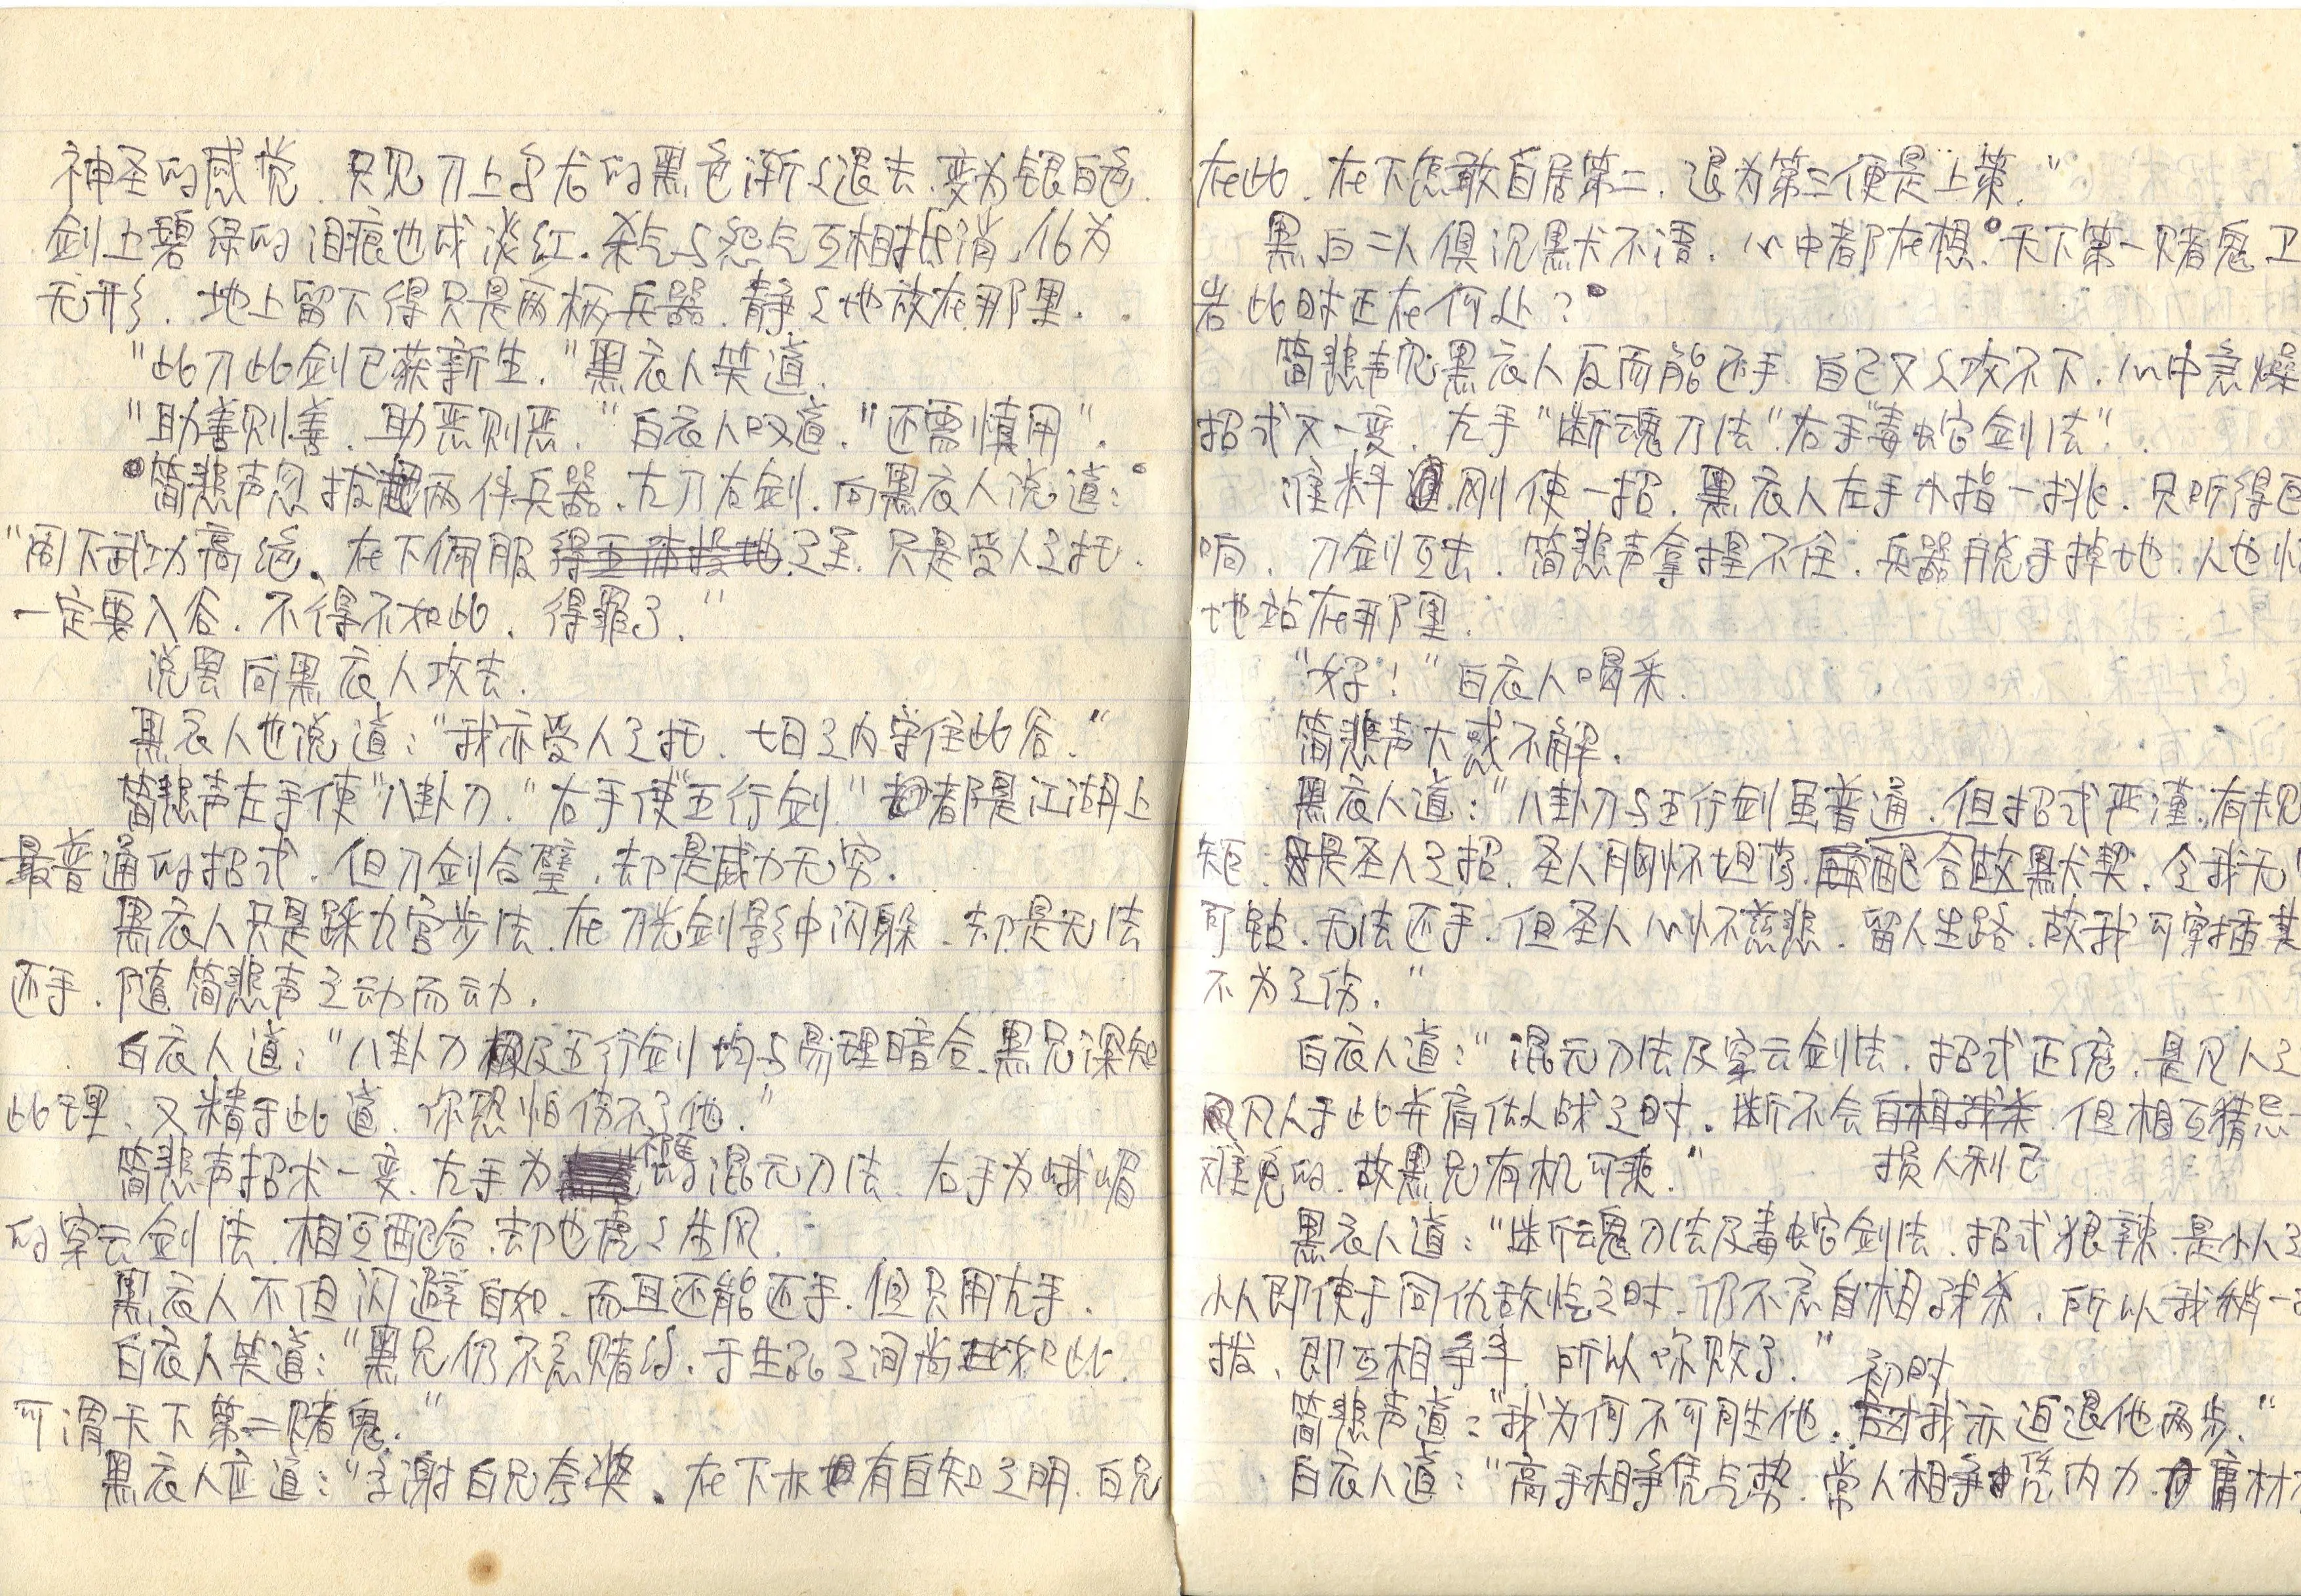 神圣的感觉. 只见刀上乌龙的黑色渐々退去.变为银白色.
剑上碧绿的泪痕也成淡红.杀气与怨气互相抵消,化为
无形. 地上留下得只是两柄兵器.静々地放在那里.
"此刀此剑已获新生."黑衣人笑道.
"助善则善.助恶则恶."白衣人叹道."还需慎用".
简悲声忽拔起两件兵器.左刀右剑.向黑衣人说道:
"阁下武功高绝.在下佩服之至.只是受人之托.
一定要入谷.不得不如此.得罪了."
说罢向黑衣人攻去.
黑衣人也说道:"我亦受人之托.七日之内守住此谷."
简悲声左手使"八卦刀."右手使"五行剑"都是江湖上
最普通的招式.但刀剑合璧,却是威力无穷.
黑衣人只是踩九宫步法.在刀光剑影中闪躲.却是无法
还手.随简悲声之动而动.
白衣人道:"八卦刀及五行剑均与易理暗合.黑兄深知
此理.又精于此道.你恐怕伤不了他."
简悲声招术一变.左手为的混元刀法.右手为峨嵋
的穿云剑法.相互配合.却也虎々生风.
黑衣人不但闪避自如.而且还能还手.但只用左手.
白衣人笑道:"黑兄仍不忘赌约.于生死之间尚如此.
可谓天下第二赌鬼."
黑衣人应道:"多谢白兄夸奖.在下亦有自知之明.白兄
在此.在下怎敢自居第二.退为第三便是上策."
黑白二人俱沉默不语.心中都在想.天下第一赌鬼卫
岩此时正在何处?
简悲声见黑衣人反而能还手.自己又久攻不下.心中急燥
招式又一变.左手"断魂刀法"右手"毒蛇剑法".
准料刚使一招.黑衣人左手小指一挑.只听得
响.刀剑互击.简悲声拿捏不住.兵器脱手掉地.人也
地站在那里.
"好!"白衣人喝采.
简悲声大惑不解.
黑衣人道:"八卦刀与五行剑虽普通.但招式严谨,有规
矩.是圣人之招.圣人胸怀坦荡.配合默契.令我无
可钻.无法还手.但圣人心怀慈悲.留人生路.故我可穿插其
不为之伤."
白衣人道:"混元刀法及穿云剑法.招式正宗.是凡人之
凡人于此并肩做战之时.断不会自相残杀.但相互猜忌
损人利己
难免的.故黑兄有机可乘."
黑衣人道:"断魂刀法及毒蛇剑法.招式狠辣.是小人之
小人即使于同仇敌忾之时.仍不忘自相残杀.所以我稍一
拨.即互相争斗.所以你败了."
初时
简悲声道:"我为何不可胜他.我亦迫退他两步."
白衣人道:"高手相争凭气势.常人相争凭内力.庸材